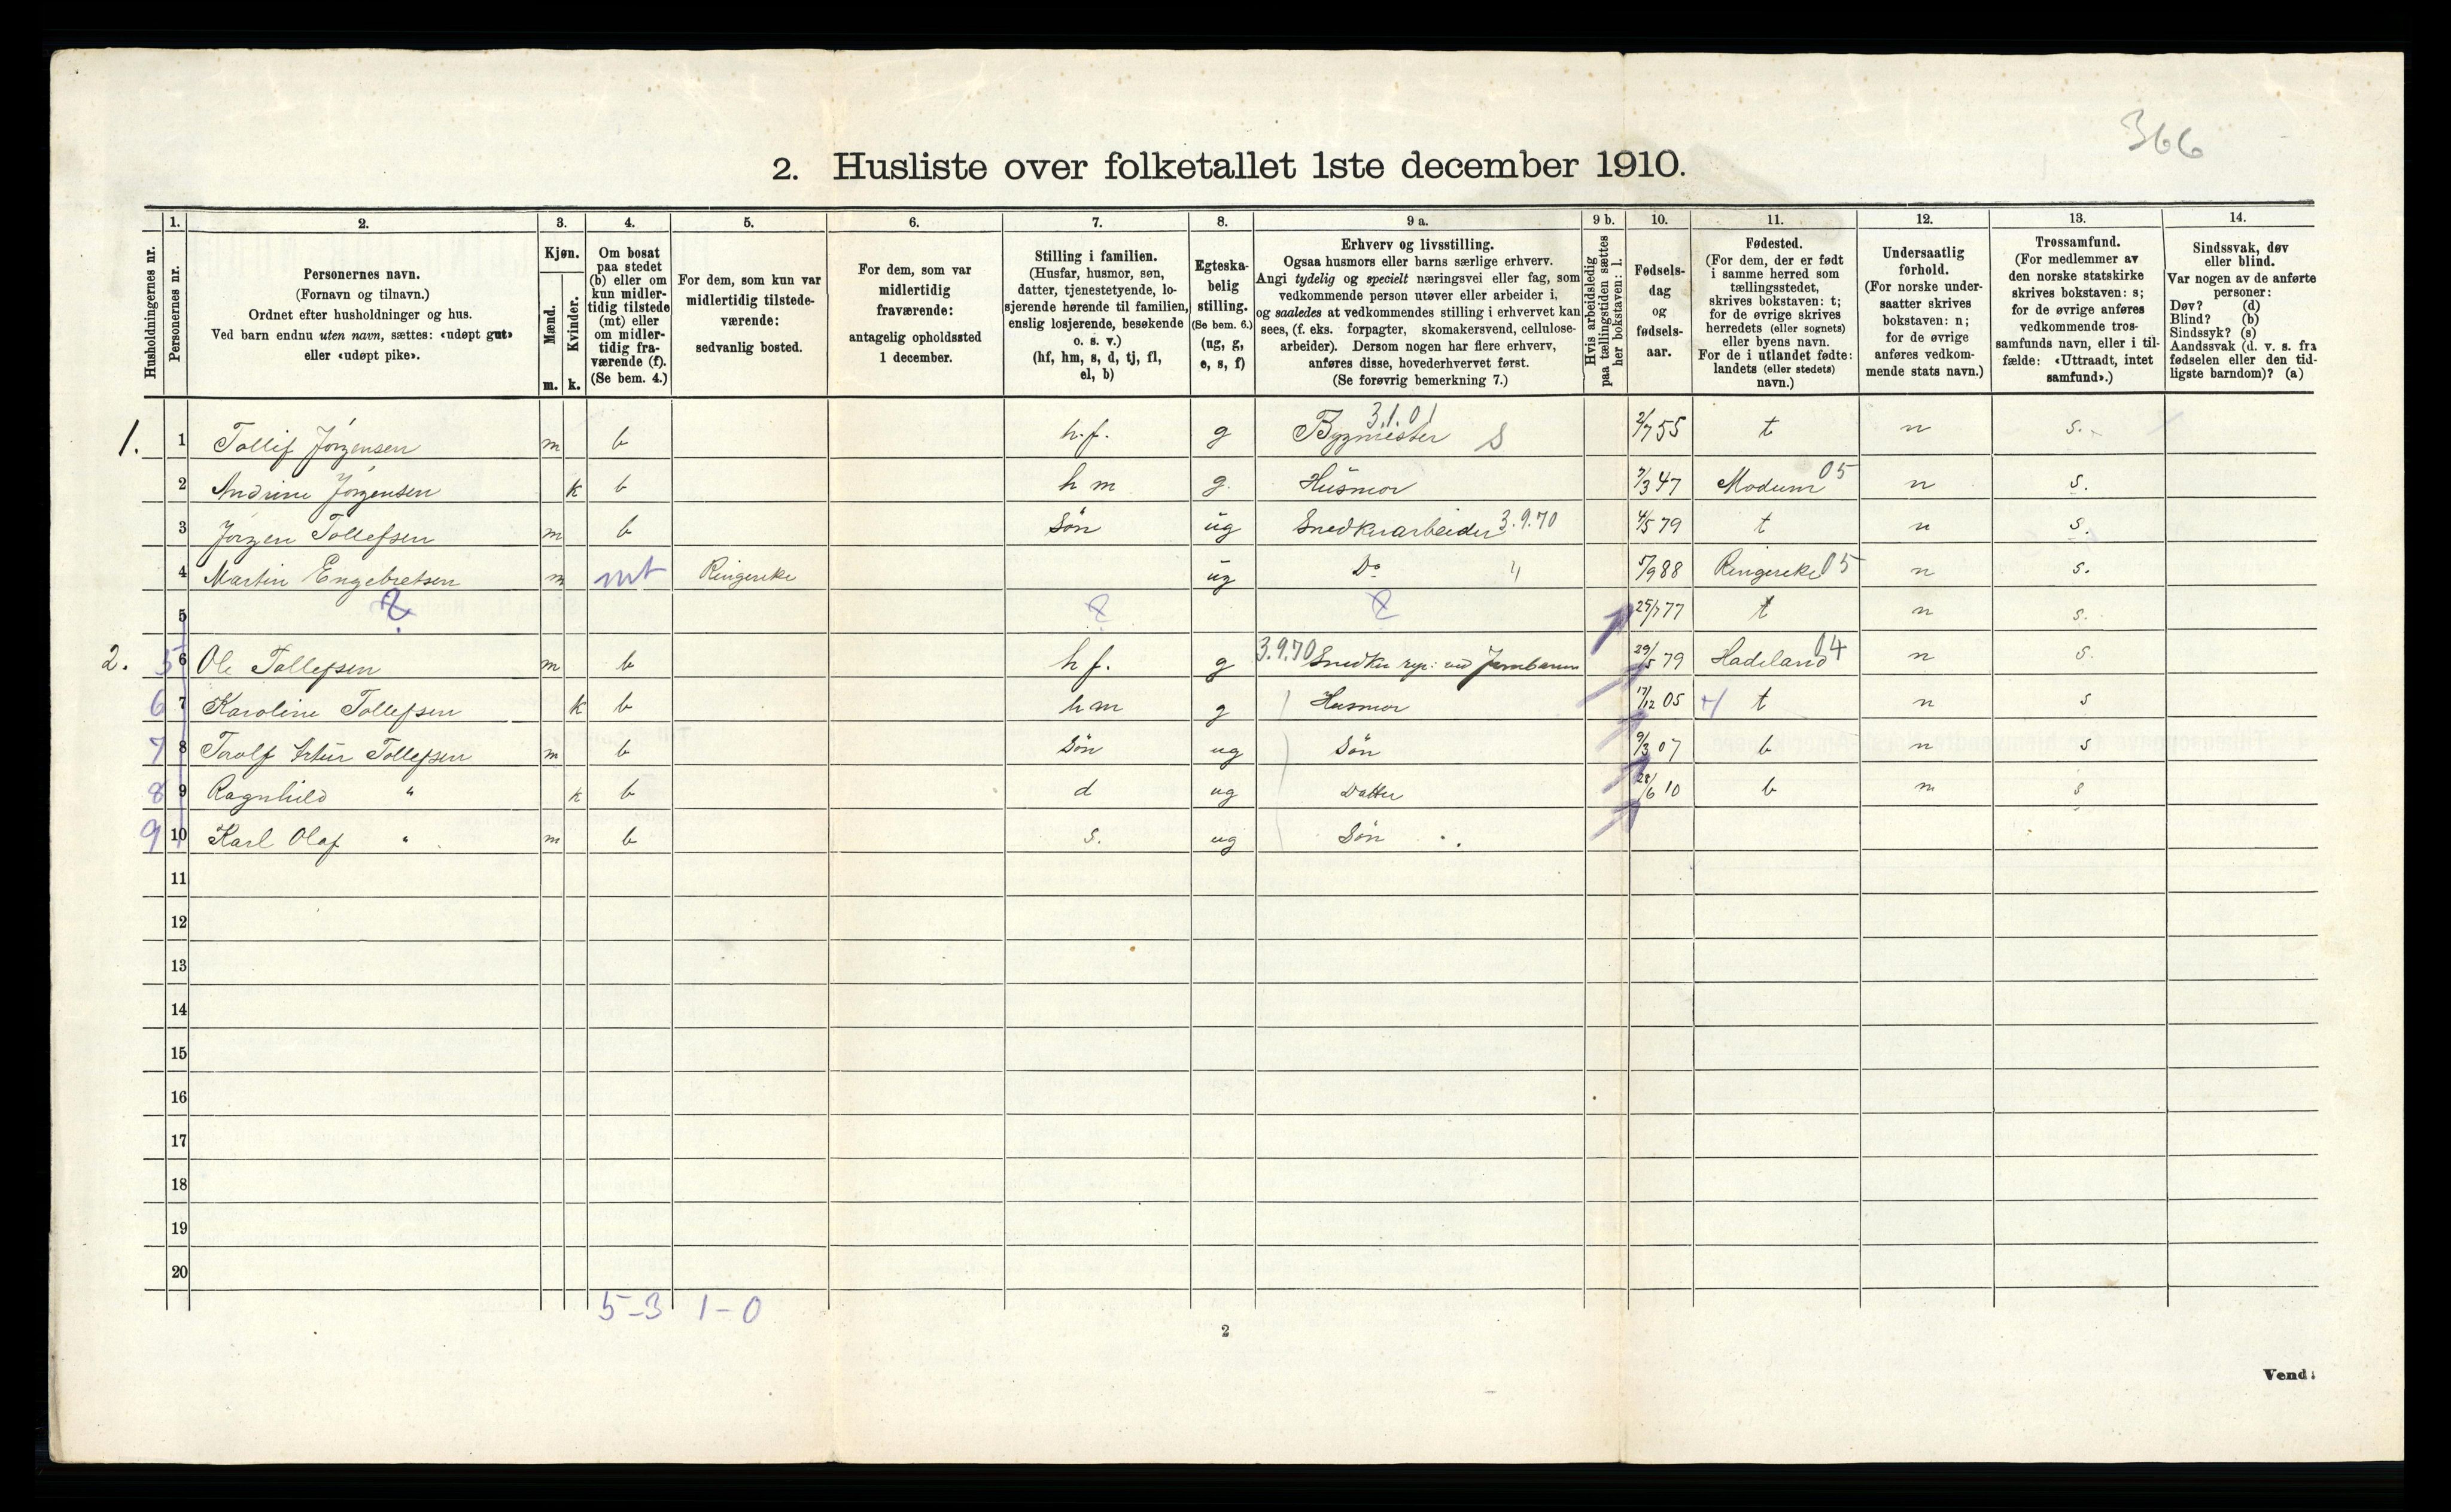 366
2. Husliste over folketallet 1ste december 1910.
Husholdningernes nr.
1.
Personernes nr.
2.
Personernes navn.
(Fornavn og tilnavn.)
Ordnet efter husholdninger og hus.
Ved barn endnu uten navn, sættes: «udøpt gut»
eller «udøpt pike».
3.
Kjøn.
Mænd.
Kvinder.
m. k.
4.
Om bosat
paa stedet
(b) eller om
kun midler-
tidig tilstede
(mt) eller
om midler-
tidig fra-
værende (f).
(Se bem. 4.)
5.
For dem, som kun var
midlertidig tilstede-
værende:
sedvanlig bosted.
6.
For dem, som var
midlertidig
fraværende:
antagelig opholdssted
1 december.
7.
Stilling i familien.
(Husfar, husmor, søn,
datter, tjenestetyende, lo-
sjerende hørende til familien,
enslig losjerende, besøkende
o. s. v.)
(hf, hm, s, d, tj, fl,
el, b)
8.
Egteska-
belig
stilling.
(Se bem. 6.)
(ug, g,
e, s, f)
9 a.
Erhverv og livsstilling.
Ogsaa husmors eller barns særlige erhverv.
Angi tydelig og specielt næringsvei eller fag, som
vedkommende person utøver eller arbeider i,
og saaledes at vedkommendes stilling i erhvervet kan
sees, (f. eks. forpagter, skomakersvend, cellulose-
arbeider). Dersom nogen har flere erhverv,
anføres disse, hovederhvervet først.
(Se forøvrig bemerkning 7.)
9 b.
Hvis arbeidsledig
paa tællingstiden sættes
her bokstaven: l.
10.
Fødsels-
dag
og
fødsels-
aar.
11.
Fødested.
(For dem, der er født
i samme herred som
tællingsstedet,
skrives bokstaven: t;
for de øvrige skrives
herredets (eller sognets)
eller byens navn.
For de i utlandet fødte:
landets (eller stedets)
navn.)
12.
Undersaatlig
forhold.
(For norske under-
saatter skrives
bokstaven: n;
for de øvrige
anføres vedkom-
mende stats navn.)
13.
Trossamfund.
(For medlemmer av
den norske statskirke
skrives bokstaven: s;
for de øvrige anføres
vedkommende tros-
samfunds navn, eller i til-
fælde: «Uttraadt, intet
samfund».)
14.
Sindssvak, døv
eller blind.
Var nogen av de anførte
personer:
Døv? (d)
Blind? (b)
Sindssyk? (s)
Aandssvak (d. v. s. fra
fødselen eller den tid-
ligste barndom)? (a)
1. 1 Tollif Jørgensen m b h.f. g Bygmester 3.1.01 S 2/7 55 t n s.
2 Andrine Jørgensen k b h m g. Husmor 7/3 47 Modum 05 n s.
3 Jørgen Tollefsen m b Søn ug Snedkerarbeider 3.9.70 4/5 79 t n s.
4 Martin Engebretsen m mt Ringerike ug Do 4 5/9 88 Ringerike 05 n s.
5 ? ? ? 25/7 77 t n s.
2. 5 6 Ole Tollefsen m b h f. g 3.9.70 Snedker rep: ved Jernbanen 29/5 79 Hadeland 04 n s.
6 7 Karoline Tollefsen k b h m g Husmor 17/12 05 t n s
7 8 Artur Tollefsen m b Søn ug Søn 9/3 07 b n s
8 9 Ragnhild " k b d ug Datter 28/6 10 b n s
9 10 Karl Olaf " m b s. ug Søn
11
12
13
14
15
16
17
18
19
20
5-3 1-0
2
Vend!